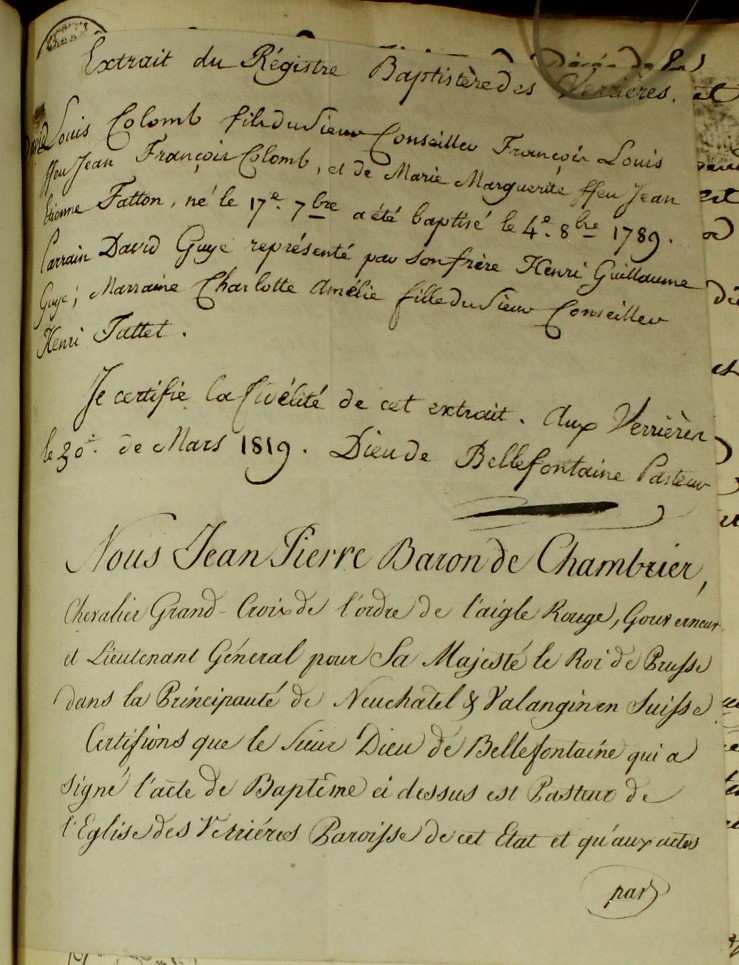 Extrait du Régistre Baptistère des Verrières.
David Louis Colomb fils du Sieur Conseiller François Louis
ffeu Jean François Colomb, et de Marie Marguerite ffeu Jean
Etienne Fatton, né le 17e. 7bre a été baptisé le 4e. 8bre 1789.
Parrain David Guye représenté par son frère Henri Guillaume
Guye; Marraine Charlotte Amélie fille du Sieur Conseiller
Henri Fattet.
Je certifie la fidélité de cet extrait. Aux Verrières
le 30e. de Mars 1819. Dieu de Bellefontaine Pasteur
Nous Jean Pierre Baron de Chambrier,
Chevalier Grand-Croix de l'ordre de l'aigle Rouge, Gouverneur
et Lieutenant Général pour Sa Majesté le Roi de Prusse
dans la Principauté de Neuchatel & Valangin en Suisse.
Certifions que le Sieur Dieu de Bellefontaine qui a
signé l'acte de Baptême ci dessus est Pasteur de
l'Eglise des Verriéres Paroisse de cet Etat et qu'aux actes
par